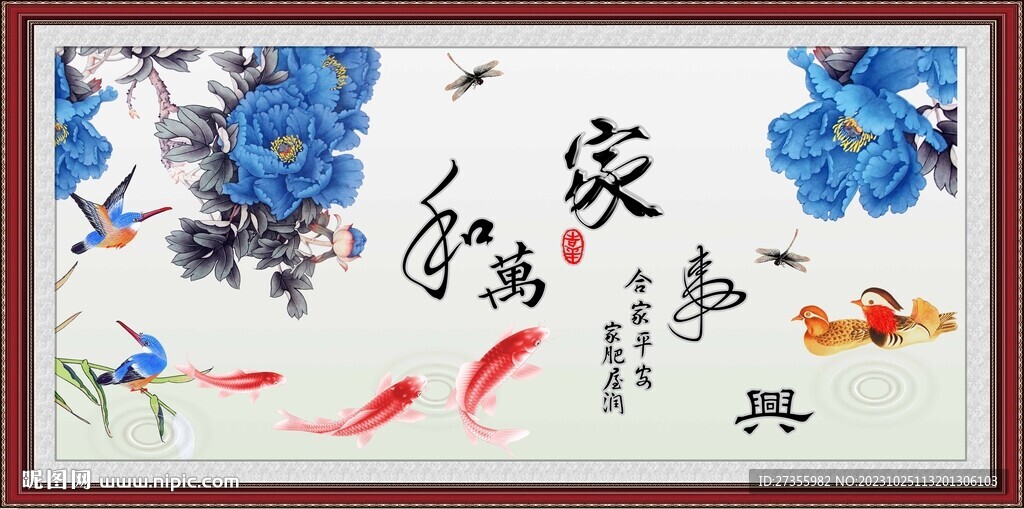 家
和
萬
事
興
合家平安
家肥屋润
昵图网 www.nipic.com
ID:27355982 NO:20231025113201306103